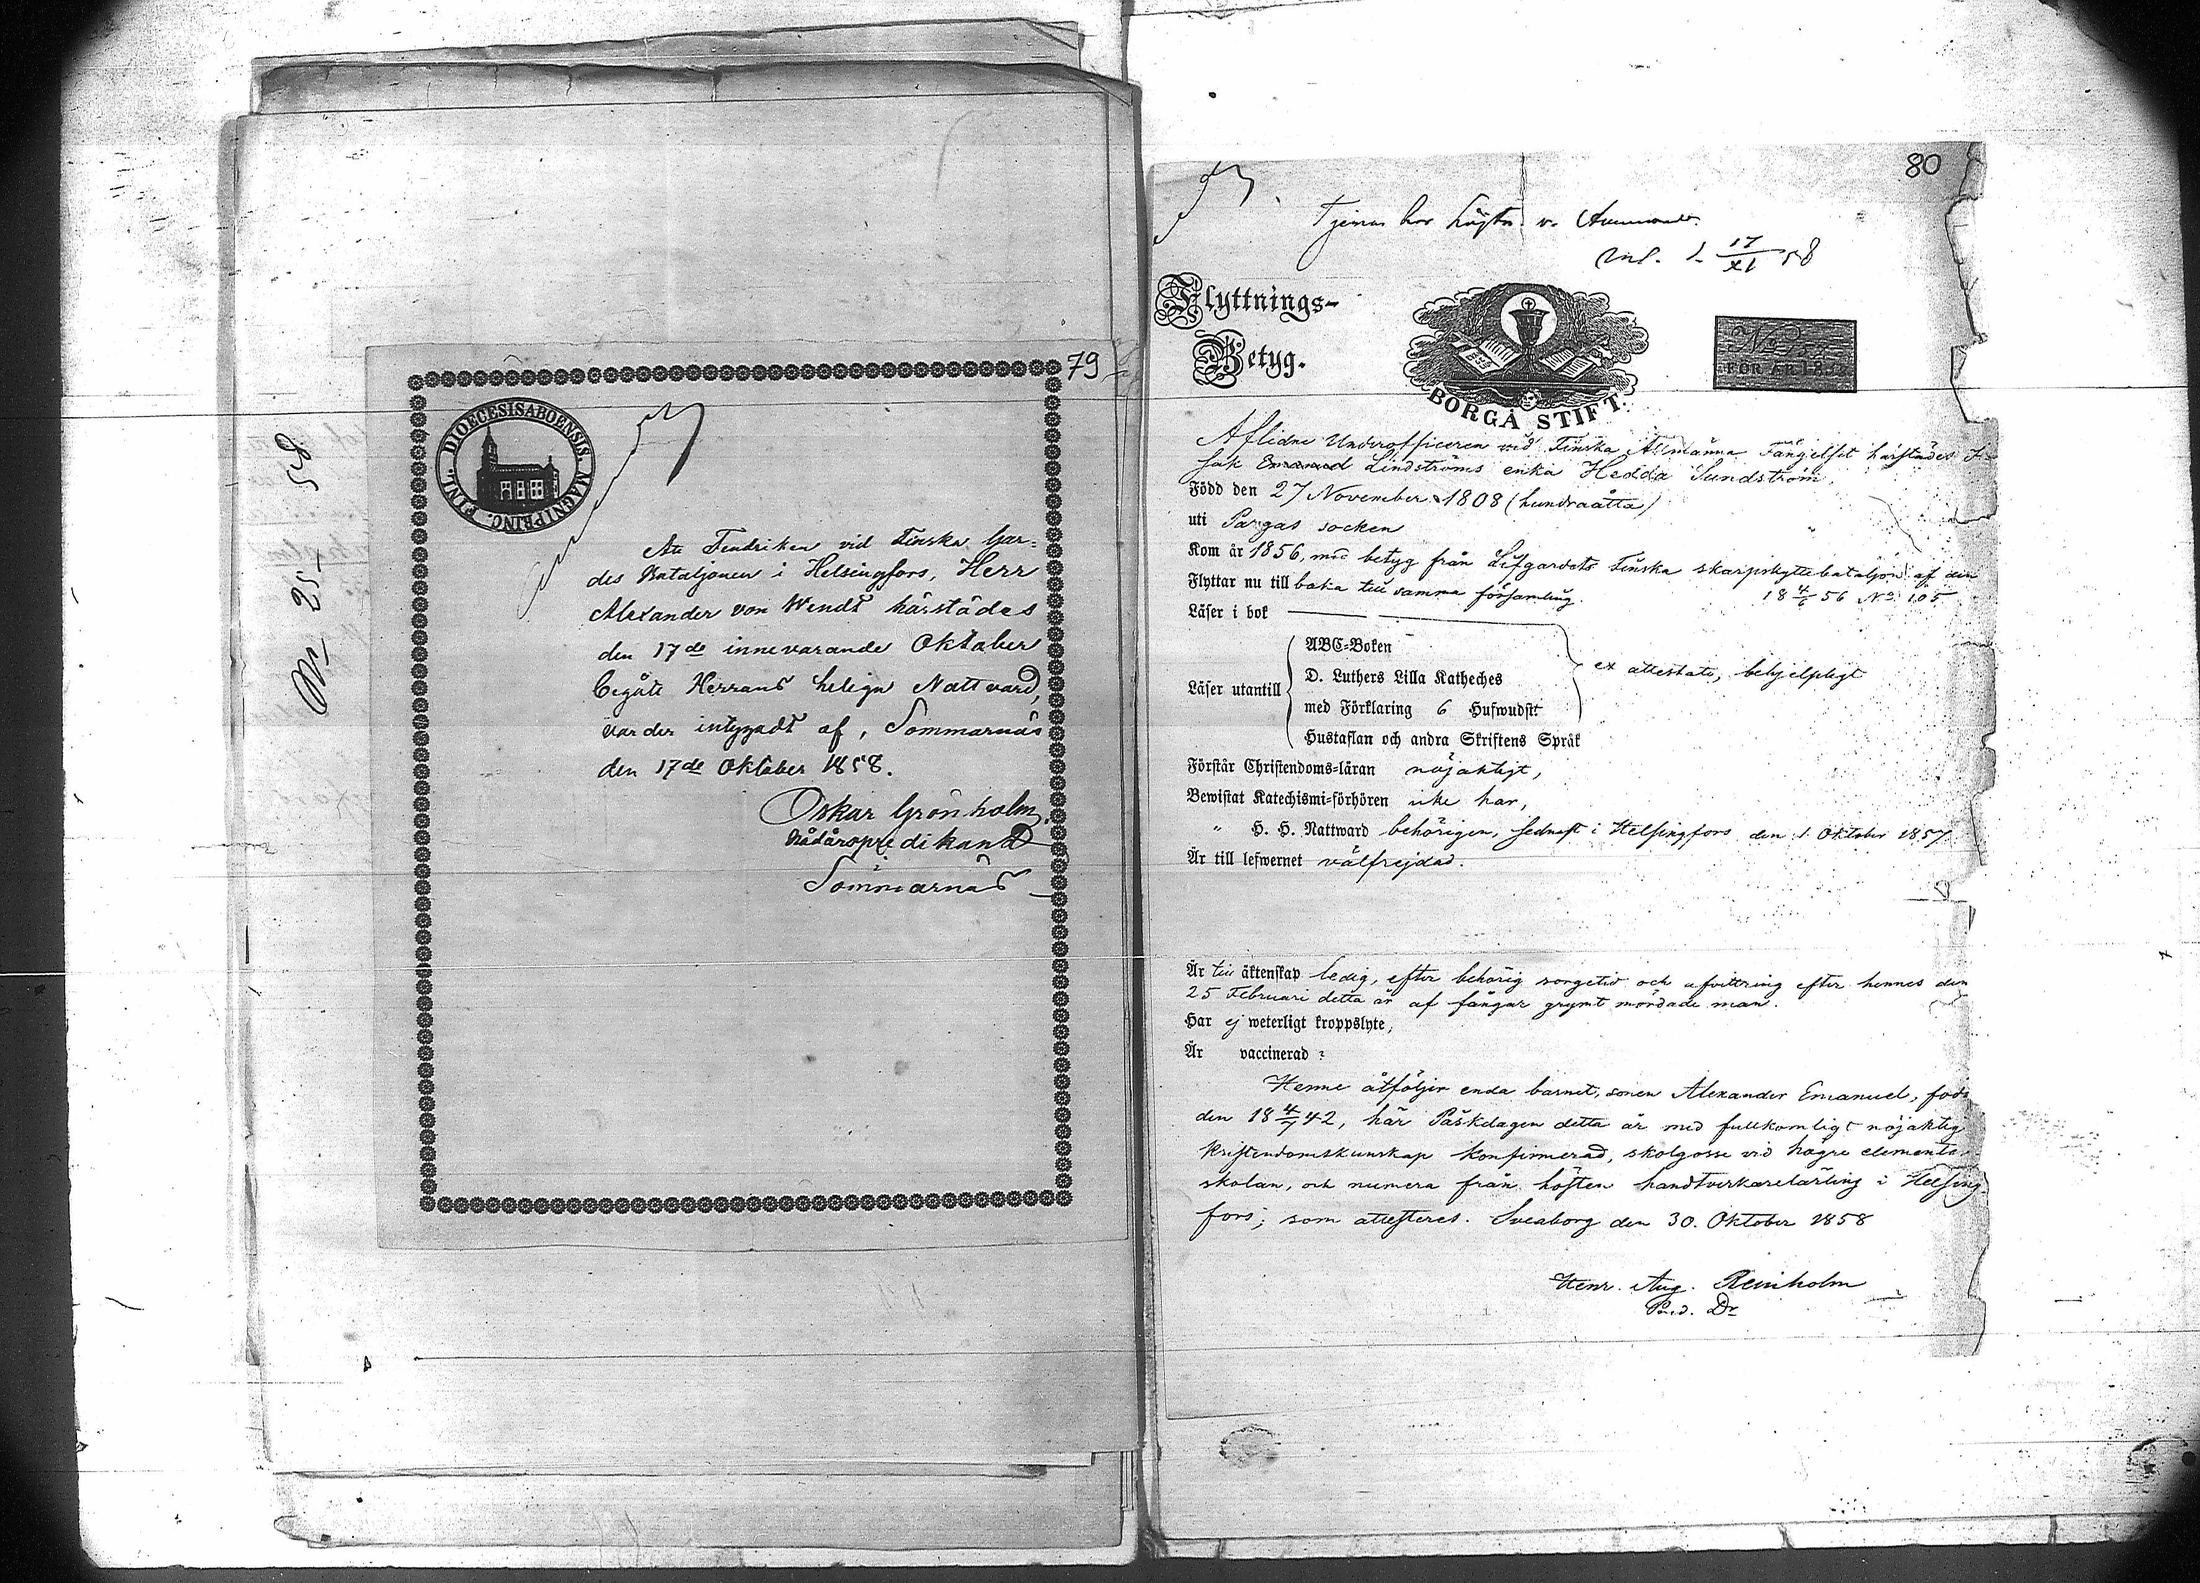 79
DIOECESIS ABOENSIS. MAGNI PRINC. FINL.
No 25 58
Att Fendriken vid Finska Gar=
des Bataljonen i Helsingfors, Herr
Alexander von Wendt härstädes
den 17de innevarande Oktober
begått Herrans heliga Nattvard,
varder intygadt af, Sommarnäs
den 17de Oktober 1858.
Oskar Grönholm
Nådårspredikand
Sommarnäs
80
Tjenar hos v.
17/XI 58
Flyttnings-
Betyg.
BORGÅ STIFT.
No
FÖR ÅR 18
Aflidne Underofficeren vid Finska Allmänna Fängelset härstädes I
sak Emanuel Lindströms enka Hedda Sundström,
Född den 27 November 1808 (hundraåtta)
uti Pargas socken
Kom år 1856, med betyg från Lifgardets Finska skarpskyttebataljon af den
18 4/6 56 No 105
Flyttar nu till baka till samma församling.
Läser i bok
ABC=Boken
D. Luthers Lilla Katheches
Läser utantill
med Förklaring 6 Hufwudst:
Hustaflan och andra Skriftens Språk
ex attestato, behjelpligt
Förstår Christendoms=läran nöjaktigt,
Bewistat Katechismi=förhören icke här,
" H. H. Nattward behörigen, sednast i Helsingfors den 1. Oktober 1857
Är till lefwernet välfrejdad.
Är till äktenskap ledig, efter behörig sorgetid och afvittring efter hennes den
25 Februari detta år af fångar grymt mördade man.
Har ej weterligt kroppslyte,
Är vaccinerad ?
Henne åtföljer enda barnet, sonen Alexander Emanuel, född
den 18 4/7 42, här Påskdagen detta år med fullkomligt nöjaktig
kristendomskunskap konfirmerad, skolgosse vid högre elementar
skolan, och numera från hösten handtverkarelärling i Helsing
fors; som attesteres. Sveaborg den 30. Oktober 1858
Henr. Aug. Reinholm
Pred. Dr